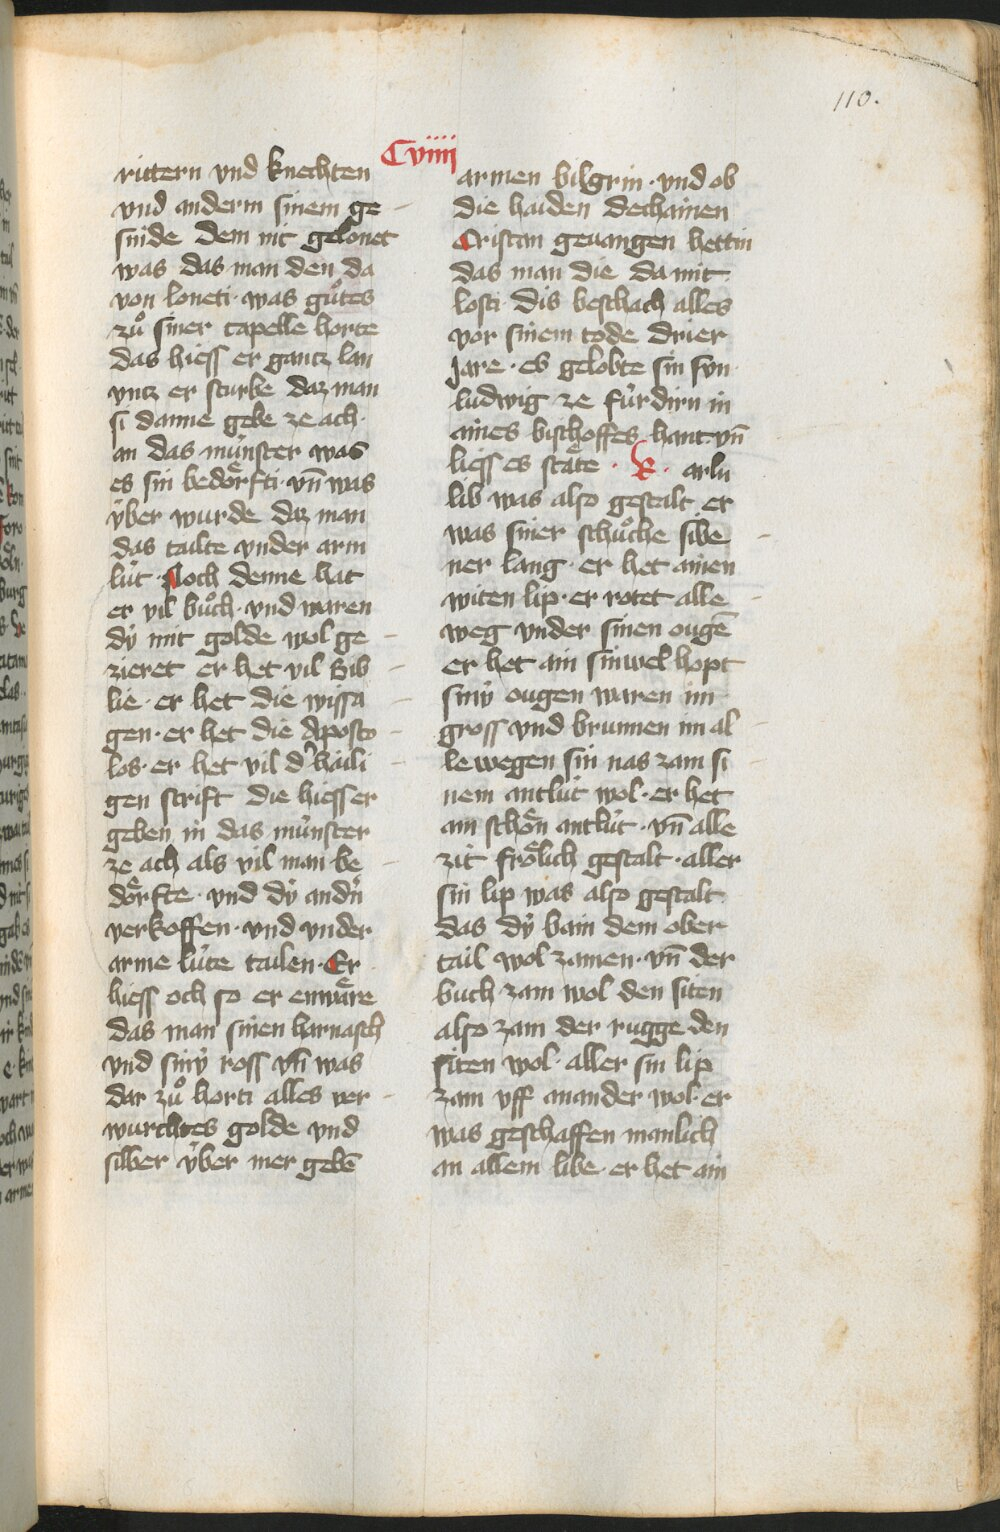 110.
Cviiii
rittern vnd knechten
vnd anderm sinem ge
sinde dem nit gelonet
was das man den da
von loneti · was guͦtes
zuͦ siner capelle horte
das hiess er gantz lan
vntz er sturbe daz man
si danne gebe ze ach ·
an das mu̍nster was
es sin bedoͤrfti · vn̄ was
v̍ber wurde daz man
das tailte vnder arm
lu̍t · Noch denne hat
er vil buͦch · vnd waren
dy̍ mit golde wol ge
zieret er het vil bib
lie · er het die wissa
gen · er het die Aposto
los · er het vil d' haili
gen scrift die hiess er
geben in das mu̍nster
ze ach als vil man be
doͤrfte · vnd dy̍ andn̍
verkoffen · vnd vnder
arme lu̍te tailen · Er
hiess och so er enwaͤre
das man sinen harnasch
vnd siny̍ ross vn̄ was
dar zuͦ horti alles ver
wurchtes golde vnd
silber v̍ber mer gebē
armen bilgrin · vnd ob
die haiden dechainen
Cristan geuangen hettin
das man die da mit
losti · dis beschach alles
vor sinem tode drier
Jare · es gelobte sin svn
ludwig ze fu̍rdirn in
aines bischoffes hant vn̄
liess es staͤte · K · arlu
lib was also gestalt er
was siner schuͦche sibe
ner lang · er het ainen
witen lip · er rotet alle
weg vnder sinen ougē
er het ain sinwel hopt
siny̍ ougen waren im
gross vnd brunnen im al
le wegen sin nas zam si
nem antlu̍t wol · er het
ain schoͤn antlu̍t · vn̄ alle
zit froͤlich gestalt · aller
sin lip was also gestalt
das dy̍ bain dem ober
tail wol zamen · vn̄ der
buch zam wol den siten
also zam der rugge den
siten wol · aller sin lip
zam vff ananander wol · er
was geschaffen manlich
an allem libe · er het ain